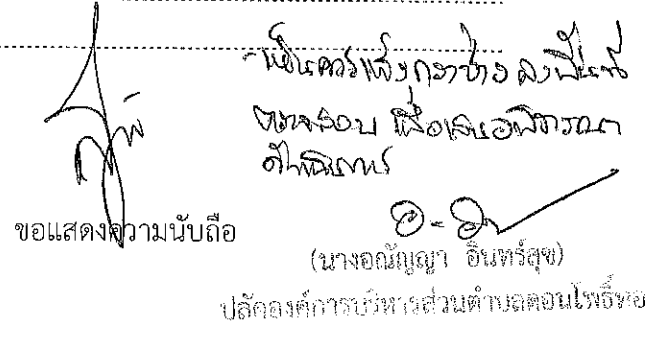 - เห็นควรแจ้งกองช่าง ลงพื้นที่
ตรวจสอบ เพื่อเสนอพิจารณา
ดำเนินการ
ขอแสดงความนับถือ
(นางอณัญญา อินทร์สุข)
ปลัดองค์การบริหารส่วนตำบลดอนโพธิ์ทอง